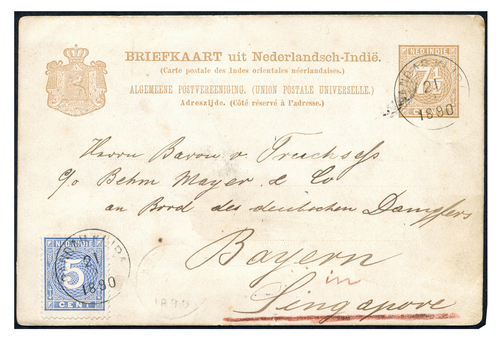 BRIEFKAART uit Nederlandsch-Indië.
(Carte postale des Indes orientales néerlandaises.)
ALGEMEENE POSTVEREENIGING. (UNION POSTALE UNIVERSELLE.)
Adreszijde. (Côté réservé à l'adresse.)
NED-INDIE
7½
21
1890
Herrn Baron v. Truchsess
c/o Behm Meyer & Co
an Bord des deutschen Dampfers
Bayern
in
Singapore
NED-INDIE
5
CENT
21
1890
1890